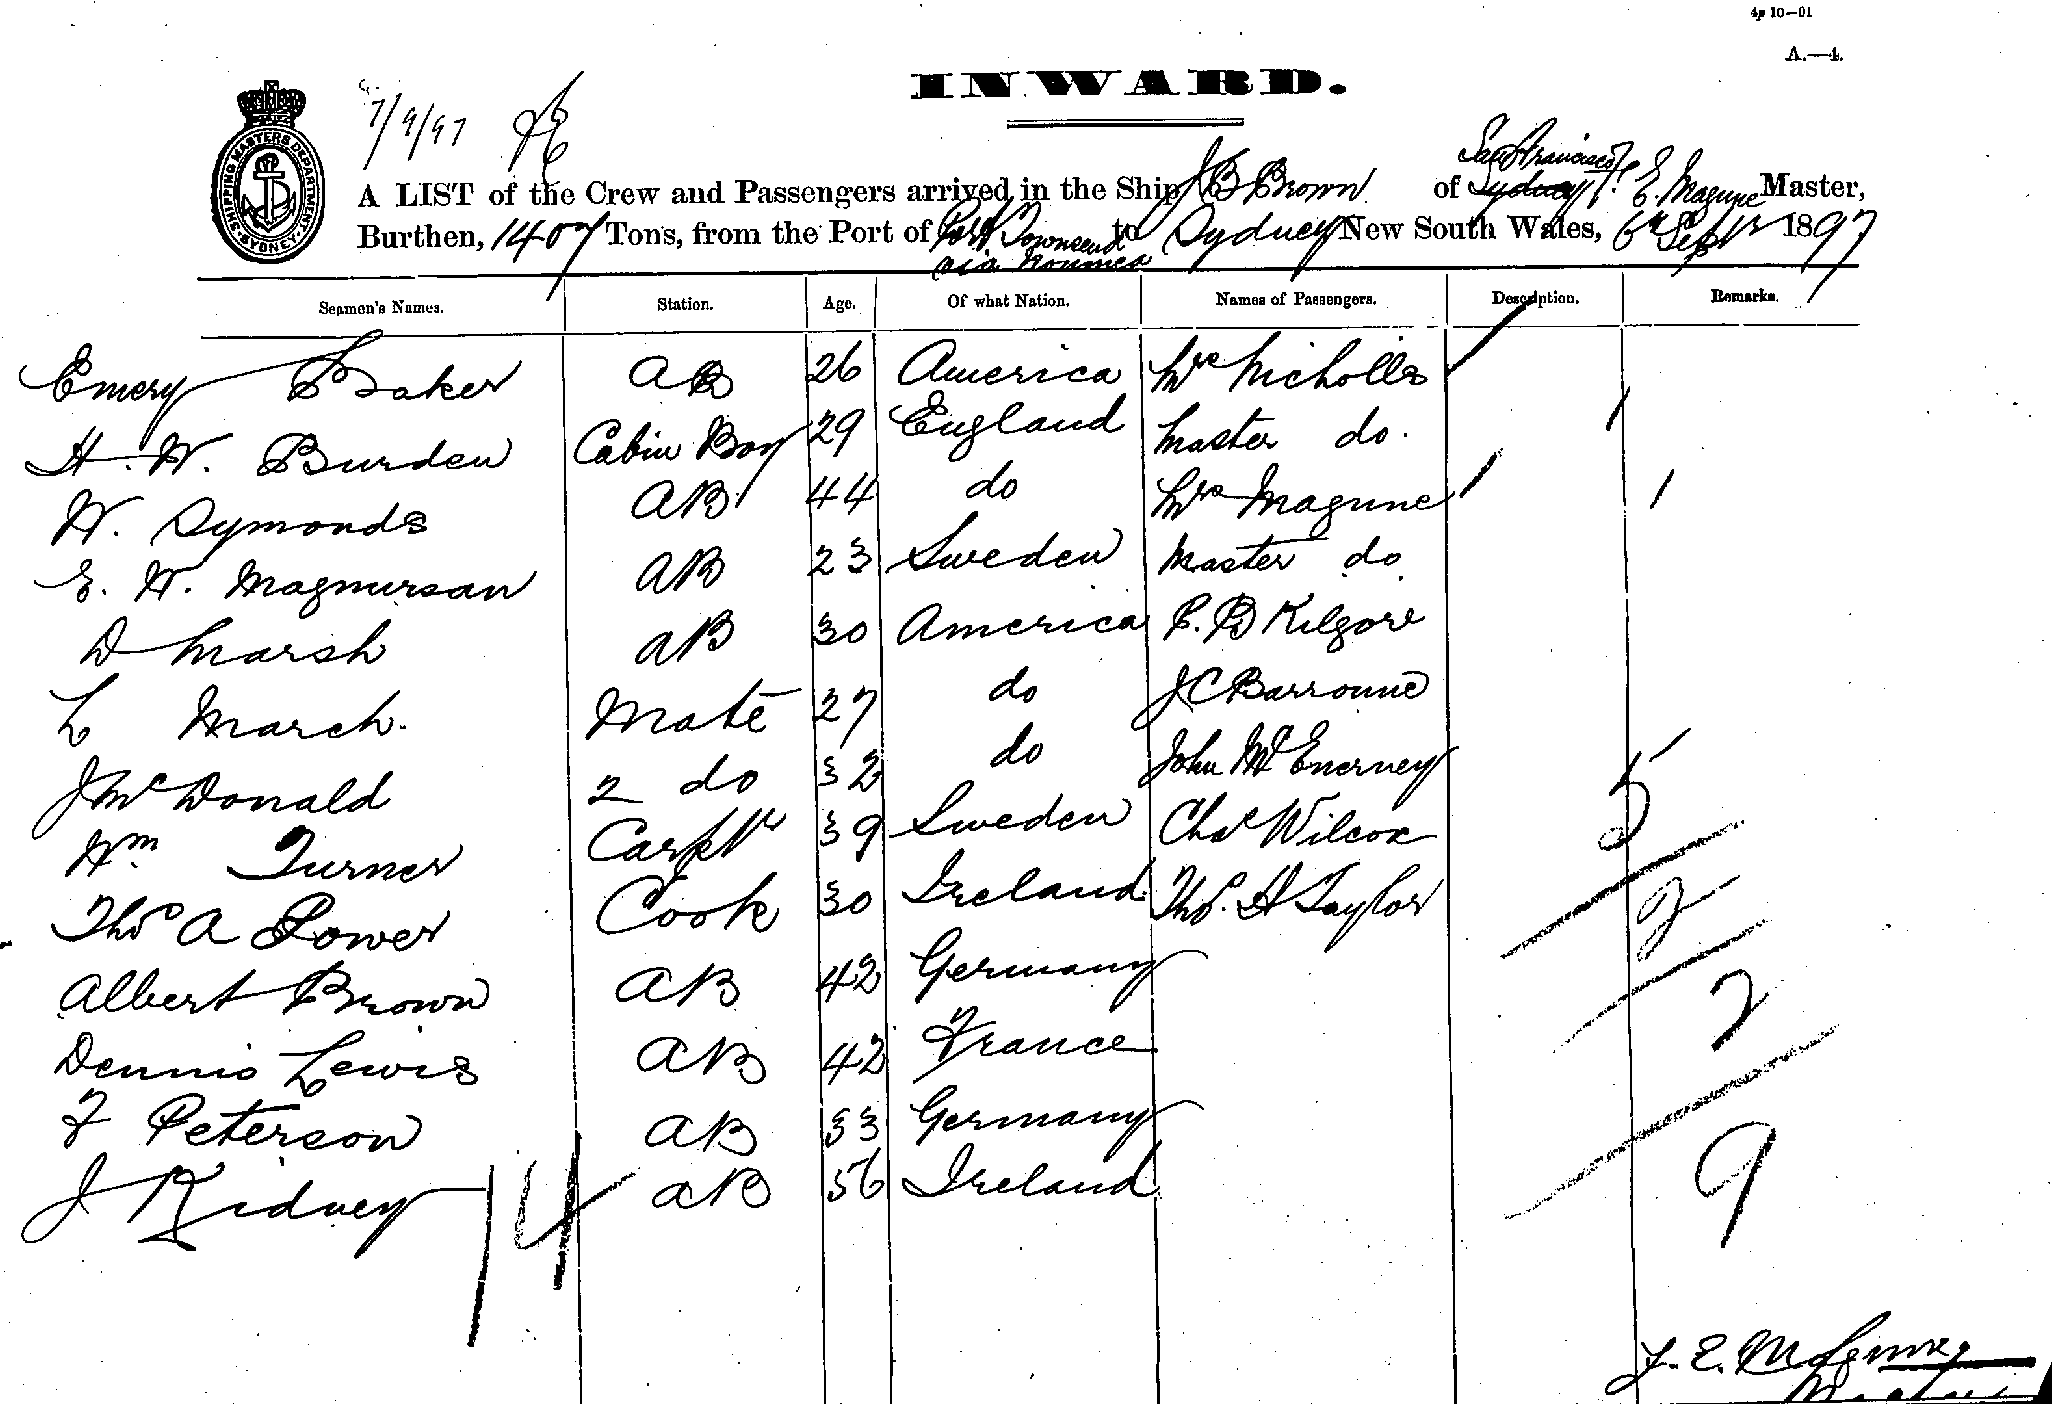 4p 10—01
A.—4.
INWARD.
7/9/97
SHIPPING MASTERS DEPARTMENT SYDNEY
San Francisco
A LIST of the Crew and Passengers arrived in the Ship J B Brown of Sydney E. Magune Master,
Burthen, 1407 Tons, from the Port of Port Townsend via Noumea to Sydney New South Wales, 6th Septr 1897
Seamen's Names. Station. Age. Of what Nation. Names of Passengers. Description. Remarks.
Emery Baker AB 26 America Mrs Nicholls /
H. W. Burden Cabin Boy 29 England Master do. /
W. Symonds AB 44 do Mrs Magune / /
E. W. Magnursan AB 23 Sweden Master do
D Marsh AB 30 America P. B Kilgore
L March. Mate 27 do J C Barroune
J Mc Donald 2 do 32 do John Mc Enerney
Wm Turner Carptr 39 Sweden Chas Wilcox 5
Thos A Power Cook 30 Ireland Thos. H Taylor 2
Albert Brown AB 42 Germany 2
Dennis Lewis AB 42 France
F Peterson AB 33 Germany 9
J Kidney AB 56 Ireland
14
Master